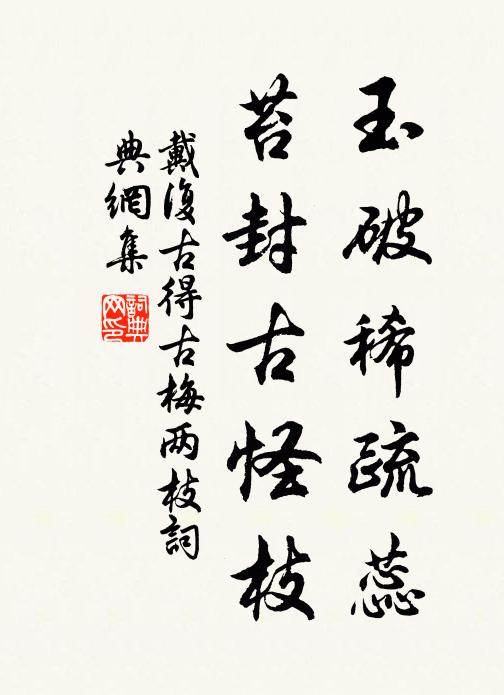 玉破稀疏蕊
苔封古怪枝
戴復古得古梅两枝詞
典網集
詞典
网印